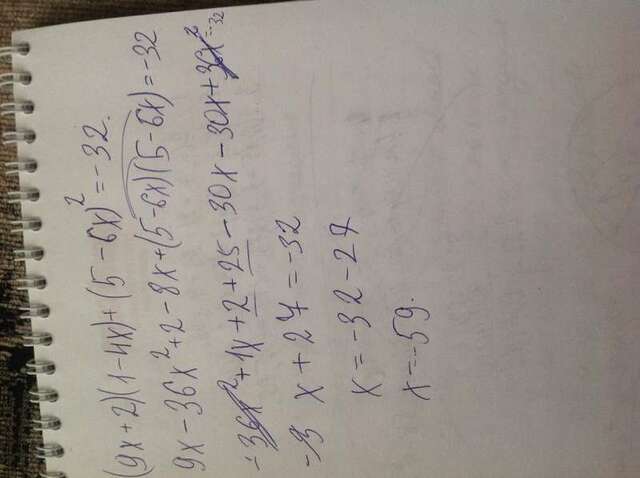 (9x+2)(1-4x)+(5-6x)²=-32.
9x-36x²+2-8x+(5-6x)(5-6x)=-32
-36x²+1x+2+25-30x-30x+36x²=-32
-3 x+27=-32
x=-32-27
x=-59.